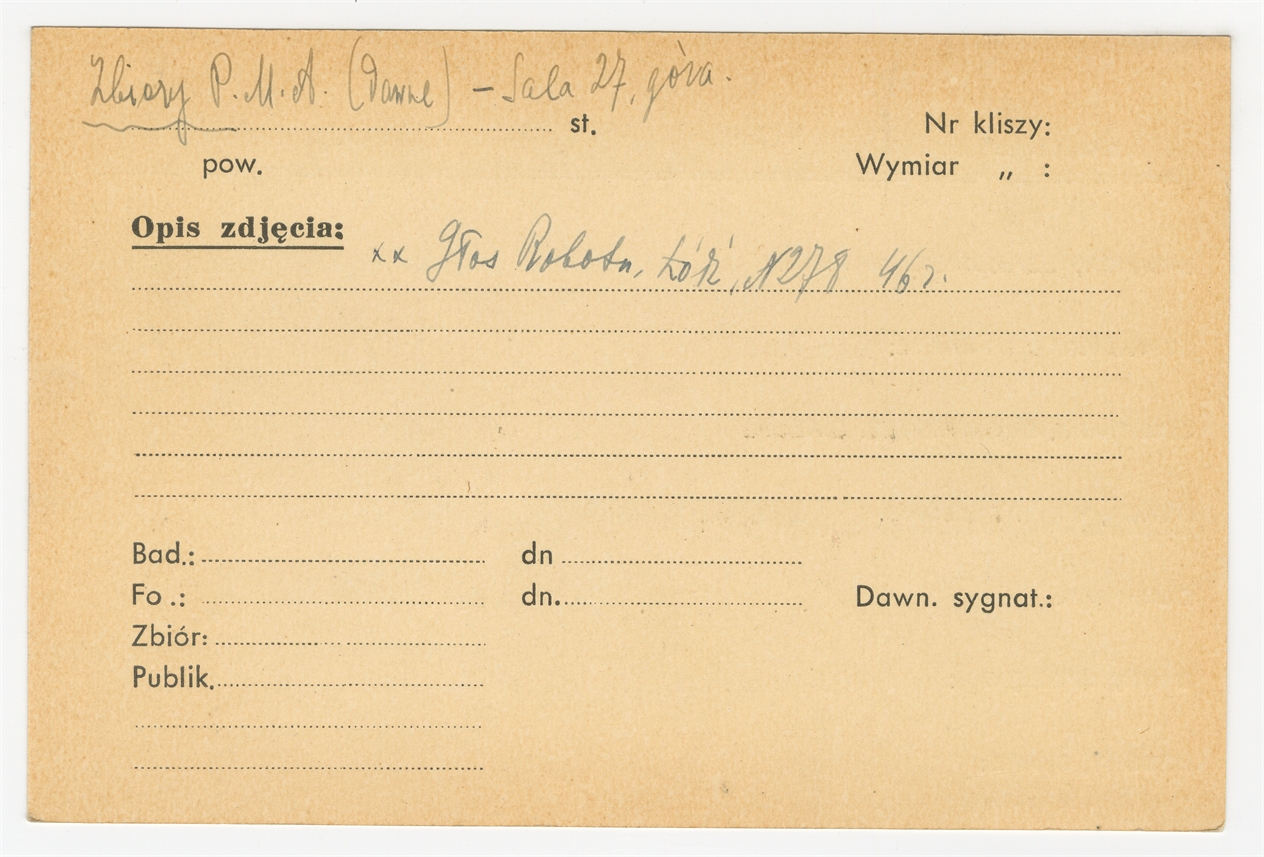 Zbiory P. M. A. (dawne) – Sala 27, góra.
st.
Nr kliszy:
pow.
Wymiar „ :
Opis zdjęcia:
xx Głos Robotn, Łódź, N278 46 r.
Bad.: dn
Fo .: dn. Dawn. sygnat.:
Zbiór:
Publik.